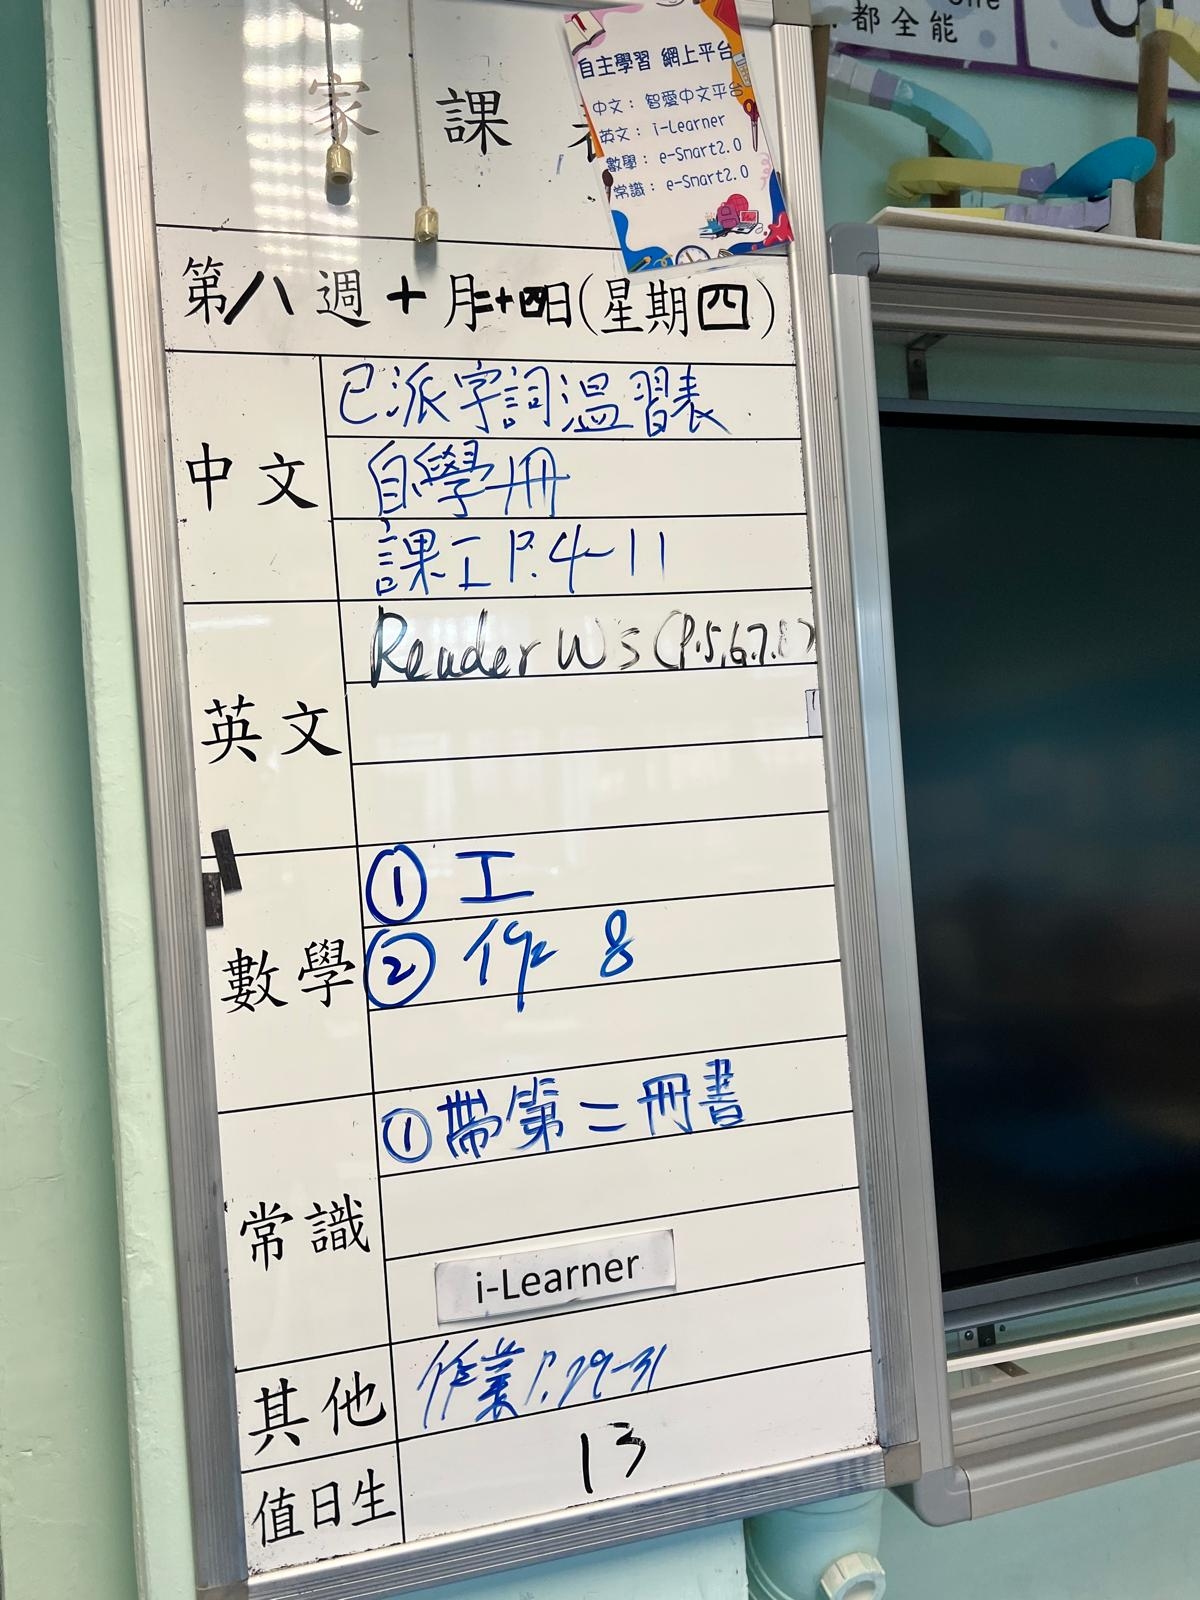 都全能
家課
自主學習 網上平台
中文： 智愛中文平台
英文： i-Learner
數學： e-Smart2.0
常識： e-Smart2.0
第八週十月二十四日(星期四)
中文
已派字詞溫習表
自學冊
課工 P.4-11
英文
Reader WS (P.5,6,7,8)
數學
① 工
② 作 8
常識
①帶第二冊書
i-Learner
其他
作業P.29-31
值日生
13